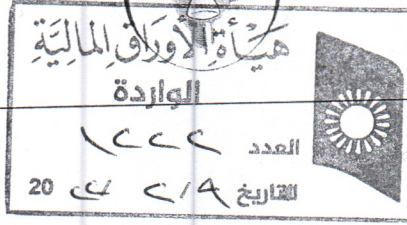 هَيْأَةُ الأَوْرَاقِ المَالِيَّةِ
الواردة
العدد ١٢٢٢
التاريخ ٢/٩
20